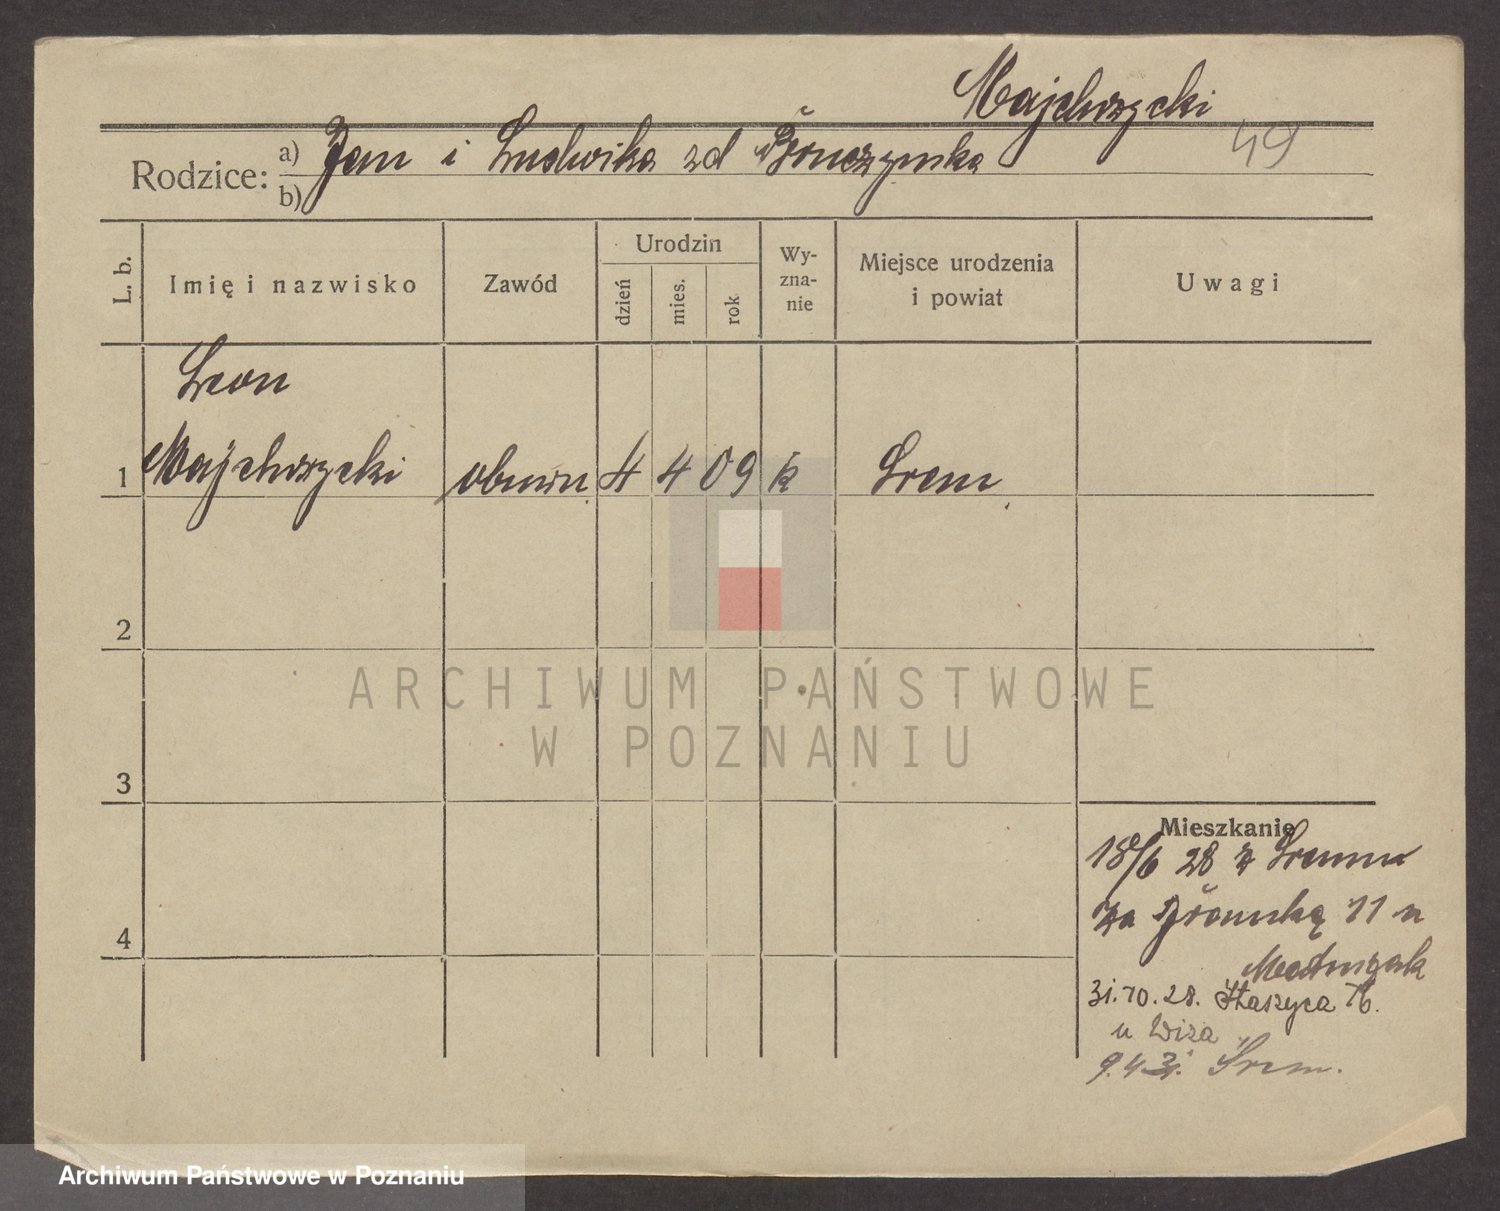 Majchrzycki
Rodzice: a) Jan i Ludwika zd
b)
49
L. b.
Imię i nazwisko
Zawód
Urodzin
dzień
mies.
rok
Wy-
zna-
nie
Miejsce urodzenia
i powiat
Uwagi
Leon
1 Majchrzycki obuwn 4 4 09 k Śrem
2
3
4
Mieszkanie
18/6 28 z Śremu
Za Bramką 11 u
31.10.28. Staszyca 16.
u Wiza
9.4.31. Śrem.
ARCHIWUM PAŃSTWOWE
W POZNANIU
Archiwum Państwowe w Poznaniu